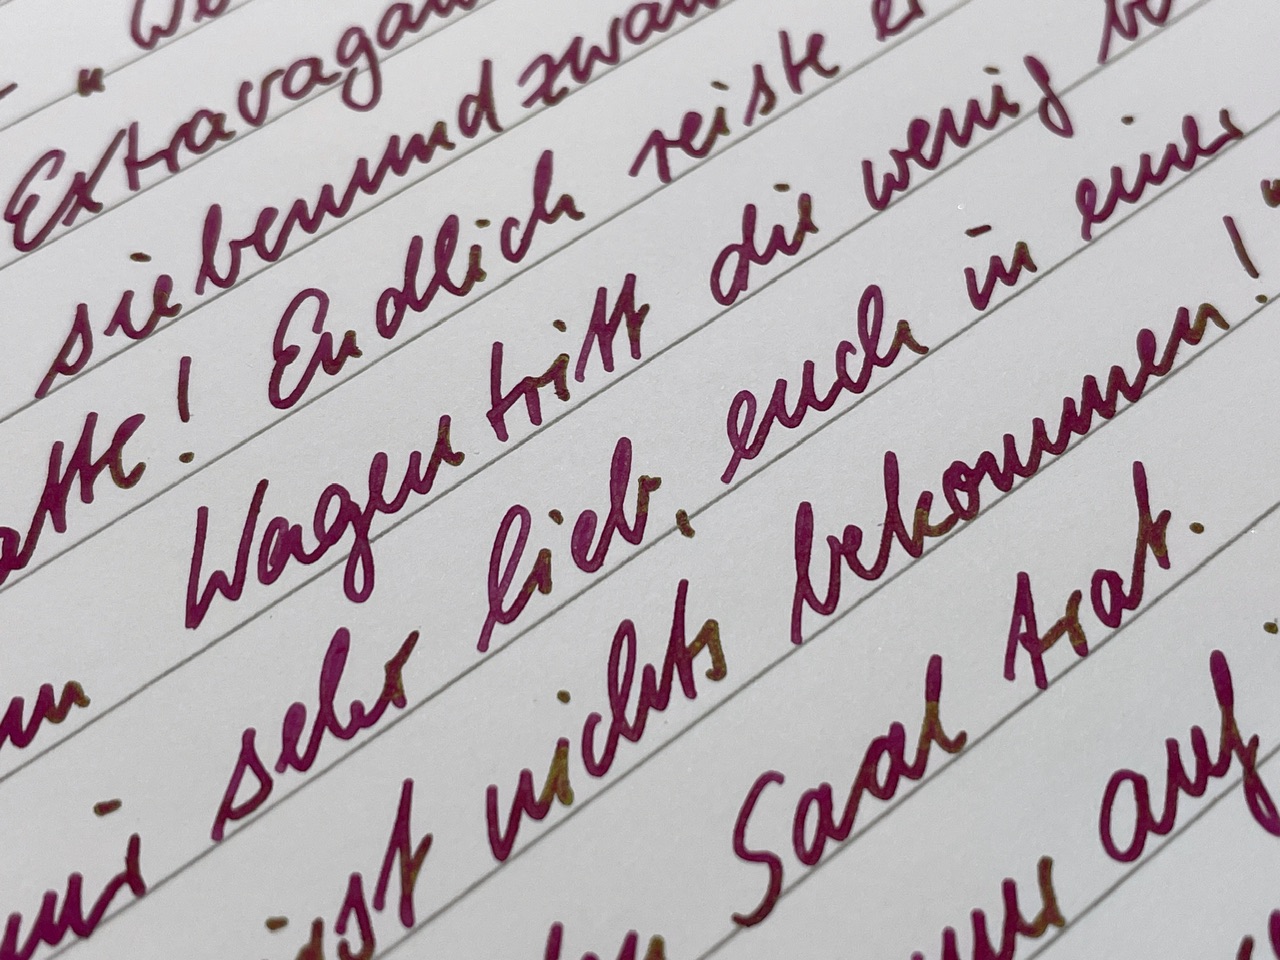 Extravagan
siebenundzwan
atte! Endlich reiste er
Wagentritt die wenig be
mir sehr lieb, euch in einer
ist nichts bekommen!"
Saal trat.
auf